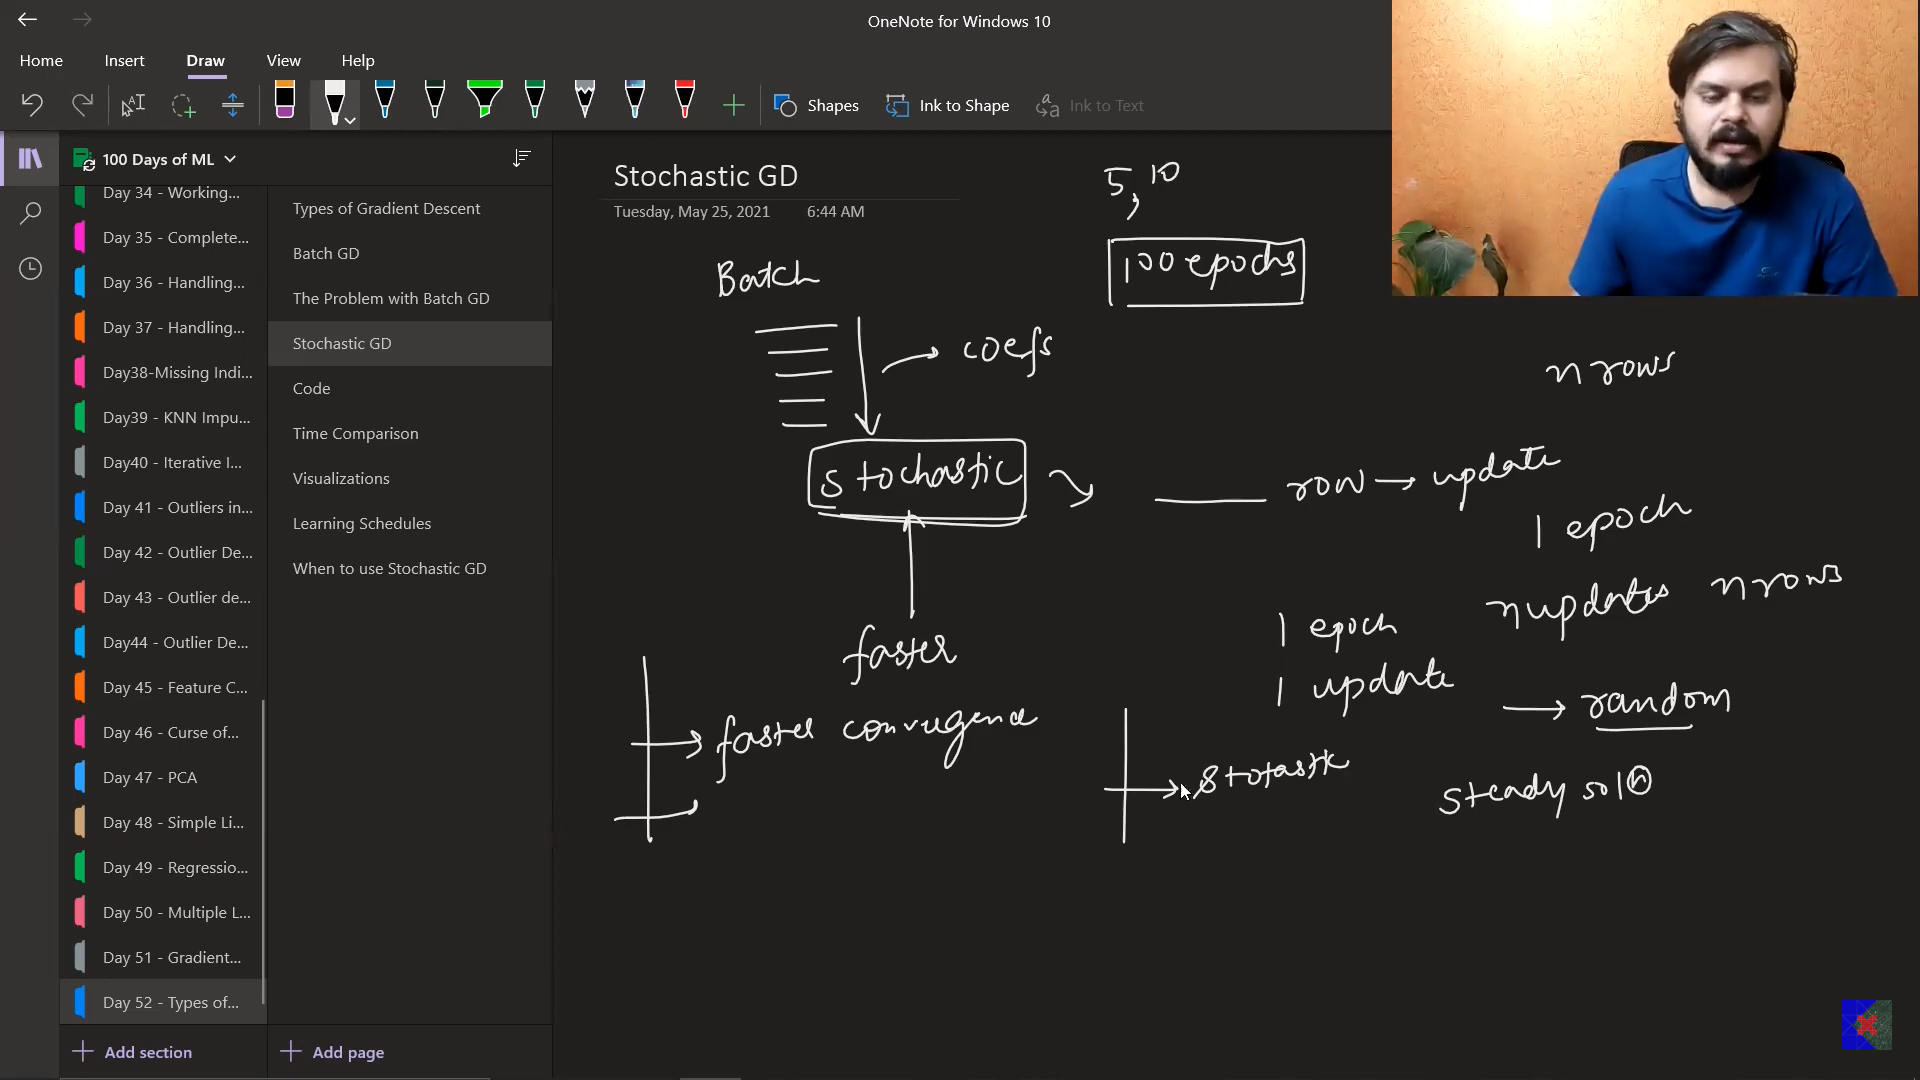 OneNote for Windows 10
Home Insert Draw View Help
Shapes Ink to Shape Ink to Text
100 Days of ML
Day 34 - Working...
Day 35 - Complete...
Day 36 - Handling...
Day 37 - Handling...
Day38-Missing Indi...
Day39 - KNN Impu...
Day40 - Iterative I...
Day 41 - Outliers in...
Day 42 - Outlier De...
Day 43 - Outlier de...
Day44 - Outlier De...
Day 45 - Feature C...
Day 46 - Curse of...
Day 47 - PCA
Day 48 - Simple Li...
Day 49 - Regressio...
Day 50 - Multiple L...
Day 51 - Gradient...
Day 52 - Types of...
Add section
Types of Gradient Descent
Batch GD
The Problem with Batch GD
Stochastic GD
Code
Time Comparison
Visualizations
Learning Schedules
When to use Stochastic GD
Add page
Stochastic GD
Tuesday, May 25, 2021 6:44 AM
5, 10
100 epochs
Batch
coefs
n rows
stochastic
row → update
1 epoch
n updates n rows
1 epoch
1 update
faster
random
faster convergence
stotastic
steady soln